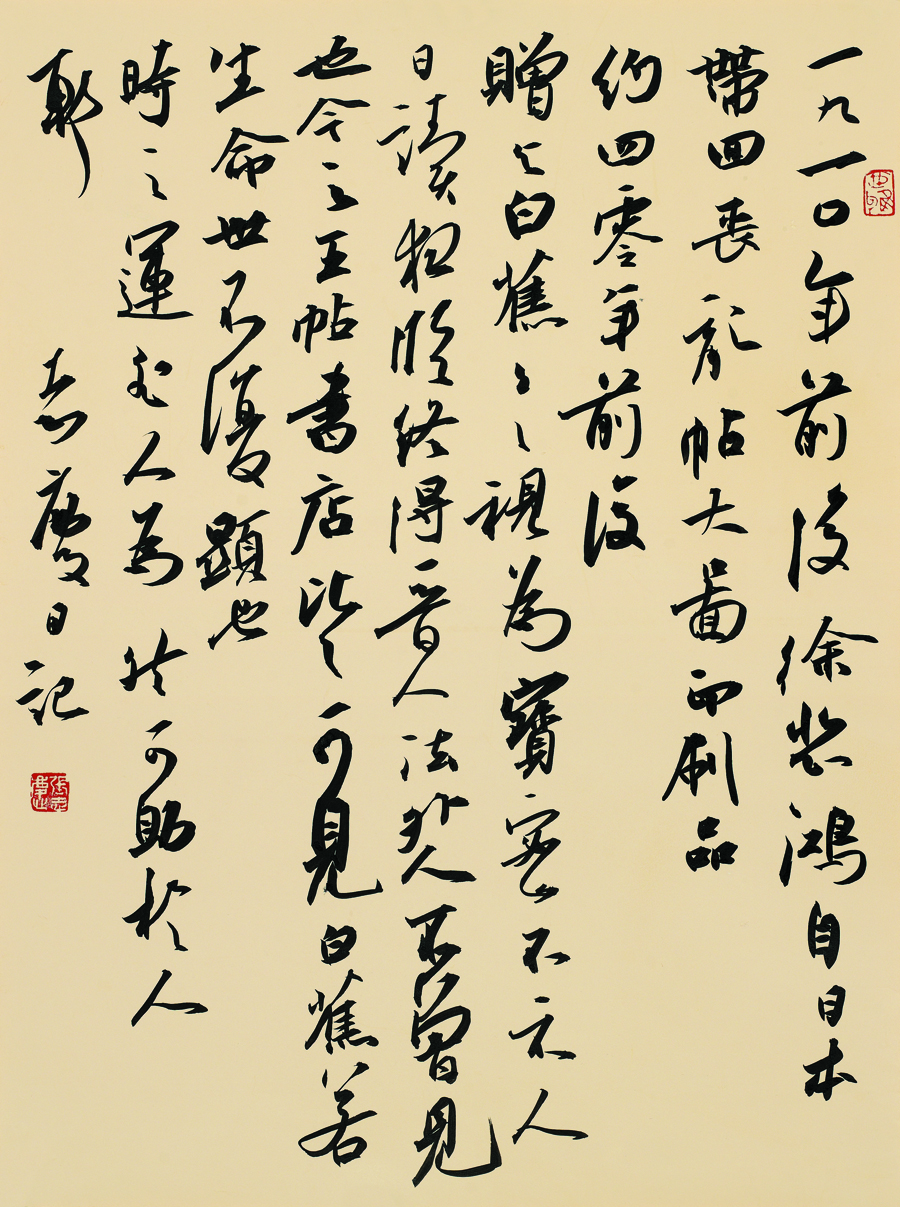 一九一〇年前後徐悲鴻自日本
帶回喪亂帖大圖印刷品
約四零年前後
贈与白蕉々々視為寶密不示人
日讀夜臨終得晋人法非人不曾見
也今二王帖書店比比可見白蕉若
生命世不復顯也
時之運非人為能可助於人
歟
志慶日記